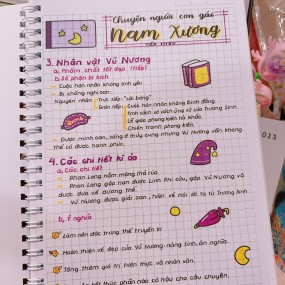 Chuyện người con gái
Nam Xương
3. Nhân vật Vũ Nương
a, Phẩm chất tốt đẹp (tiếp)
b, Số phận bi kịch
Cuộc hôn nhân không tình yêu
Bi chồng nghi oan
Nguyên nhân Trực tiếp: "cái bóng"
Gián tiếp: Cuộc hôn nhân không bình đẳng.
Tính cách và cách ứng xử của Trương Sinh.
Lễ giáo phong kiến hà khắc.
Chiến tranh phong kiến.
Được minh oan, sống ở thủy cung nhưng Vũ Nương vẫn không
thể có được hạnh phúc.
4. Các chi tiết kì ảo
a, Các chi tiết
Phan Lang nằm mộng thả rùa
Phan Lang gặp nạn được Linh Phi cứu, gặp Vũ Nương và
được đưa về dương thế.
Vũ Nương được giải oan, hiện về nói lời tạ từ Trương Sinh
b, Ý nghĩa
Làm nên đặc trưng thể truyền kì
Hoàn thiện vẻ đẹp của Vũ Nương: nặng tình, ân nghĩa.
Tăng thêm giá trị hiện thực và nhân văn.
kết thúc phần nào có hậu cho câu chuyện,
013